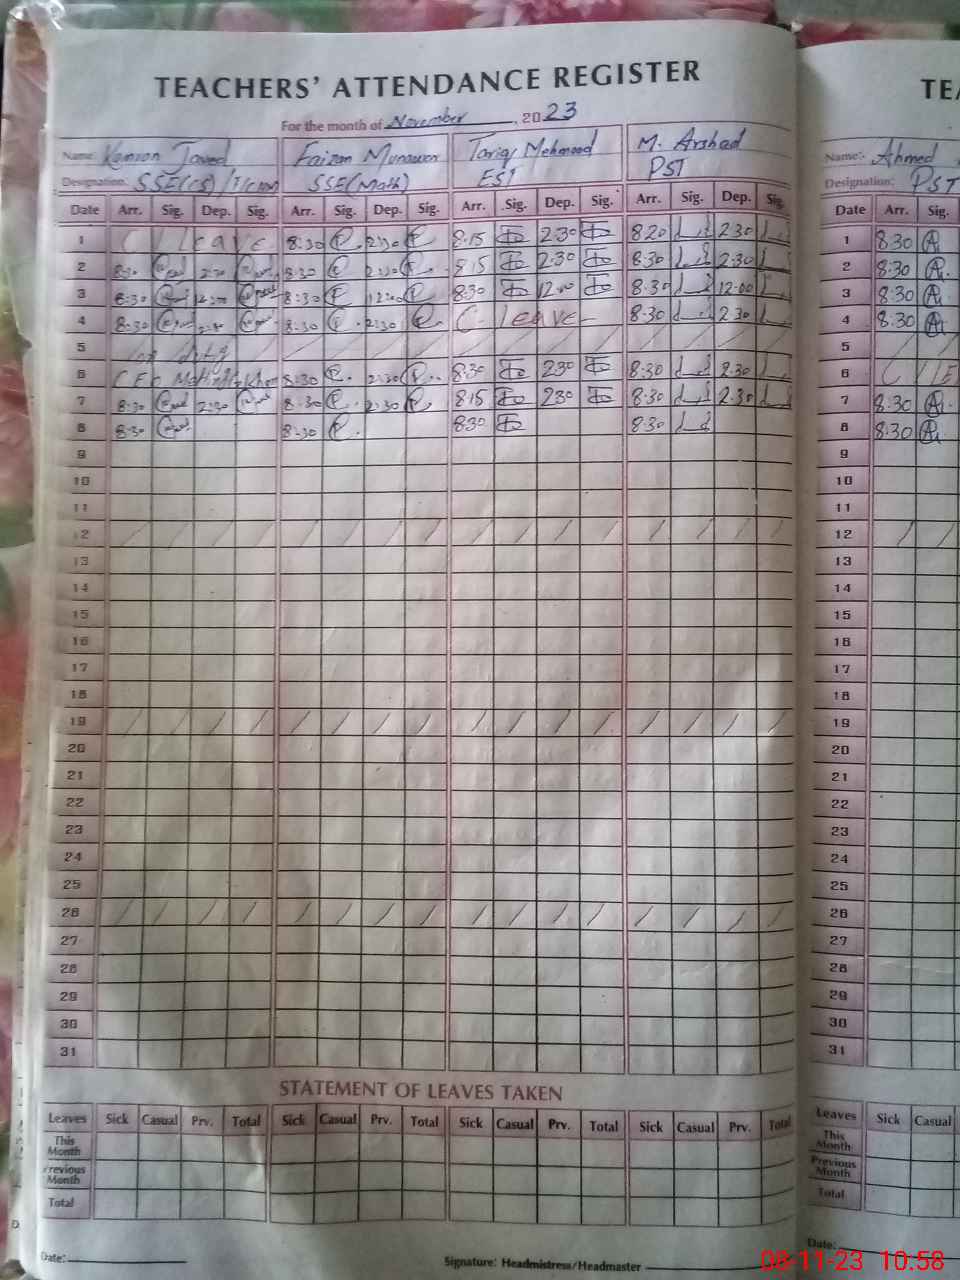 TEACHERS' ATTENDANCE REGISTER
TE
For the month of November, 2023
Name: Kamran Javed Faizan Munawar Tariq Mehmood M. Arshad Name: Ahmed
Designation: SSE(CS) SSE(Math) EST PST Designation: PST
Date Arr. Sig. Dep. Sig. Arr. Sig. Dep. Sig. Arr. Sig. Dep. Sig. Arr. Sig. Dep. Sig. Date Arr. Sig.
1 C leave 8:30 2:30 8:15 2:30 8:20 2:30 1 8:30
2 8:30 2:30 8:30 2:30 8:15 2:30 8:30 2:30 2 8:30
3 8:30 12:00 8:30 12:00 8:30 12:00 8:30 12:00 3 8:30
4 8:30 2:30 8:30 2:30 C- leave 8:30 2:30 4 8:30
5 5
6 8:30 2:30 8:30 2:30 8:30 2:30 6
7 8:30 2:30 8:30 2:30 8:15 2:30 8:30 2:30 7 8:30
8 8:30 8:30 8:30 8:30 8 8:30
9 9
10 10
11 11
12 12
13 13
14 14
15 15
16 16
17 17
18 18
19 19
20 20
21 21
22 22
23 23
24 24
25 25
26 26
27 27
28 28
29 29
30 30
31 31
STATEMENT OF LEAVES TAKEN
Leaves Sick Casual Prv. Total Sick Casual Prv. Total Sick Casual Prv. Total Sick Casual Prv. Total Leaves Sick Casual
This Month This Month
Previous Month Previous Month
Total Total
Date: Signature: Headmistress/Headmaster Date:
08-11-23 10.58